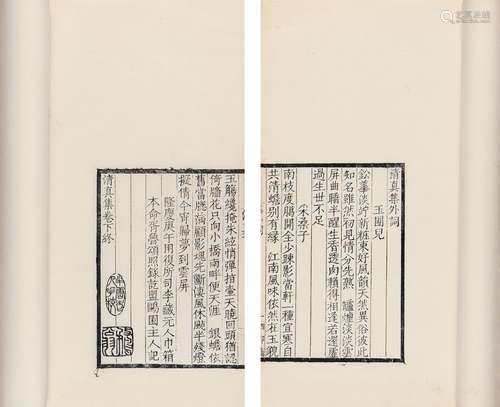 清真集外詞
玉團兒
鉛華淡竚新粧束好風韻天然異俗彼此
知名雖然初見情分先熟 鑪煙淡淡雲
屏曲睡半醒生香透肉賴得相逢若還虛
過生世不足
采桑子
南枝度臘開全少疎影當軒一種宜寒自
共清蟾別有緣 江南風味依然在玉貌
玉觴纔掩朱絃悄彈指壺天曉回頭猶認
倚牆花只向小橋南畔便天涯 銀蟾依
舊當牕滿顧影魂先斷凄風休颭半殘燈
擬倩今宵歸夢到雲屏
隆慶庚午用復所司李藏元人巾箱
本命胥魯頌照錄訖盟鷗園主人記
清真集卷下終